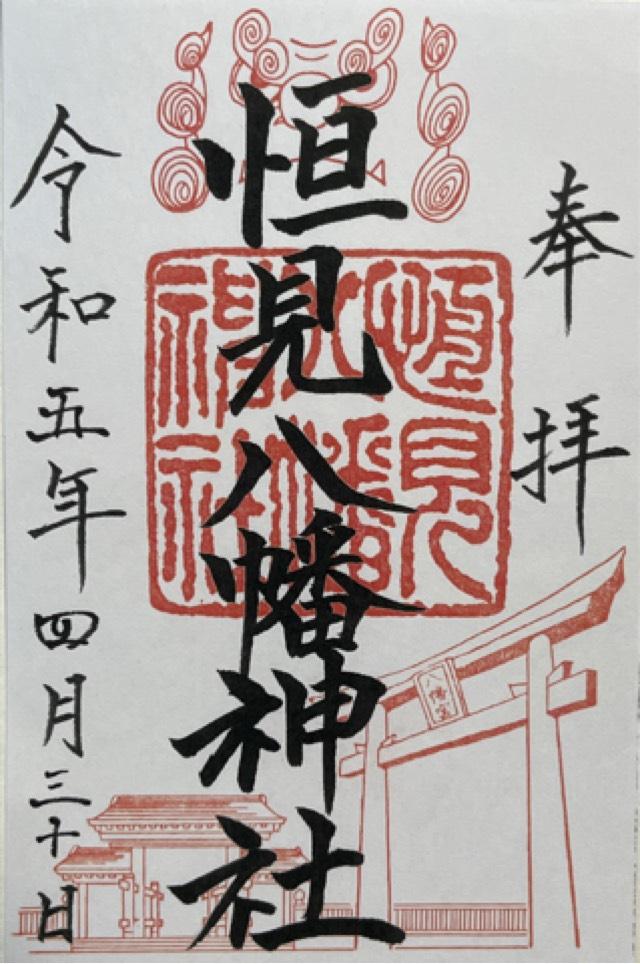 奉拝
恒見八幡神社
恒見八幡神社
八幡宮
令和五年四月三十日